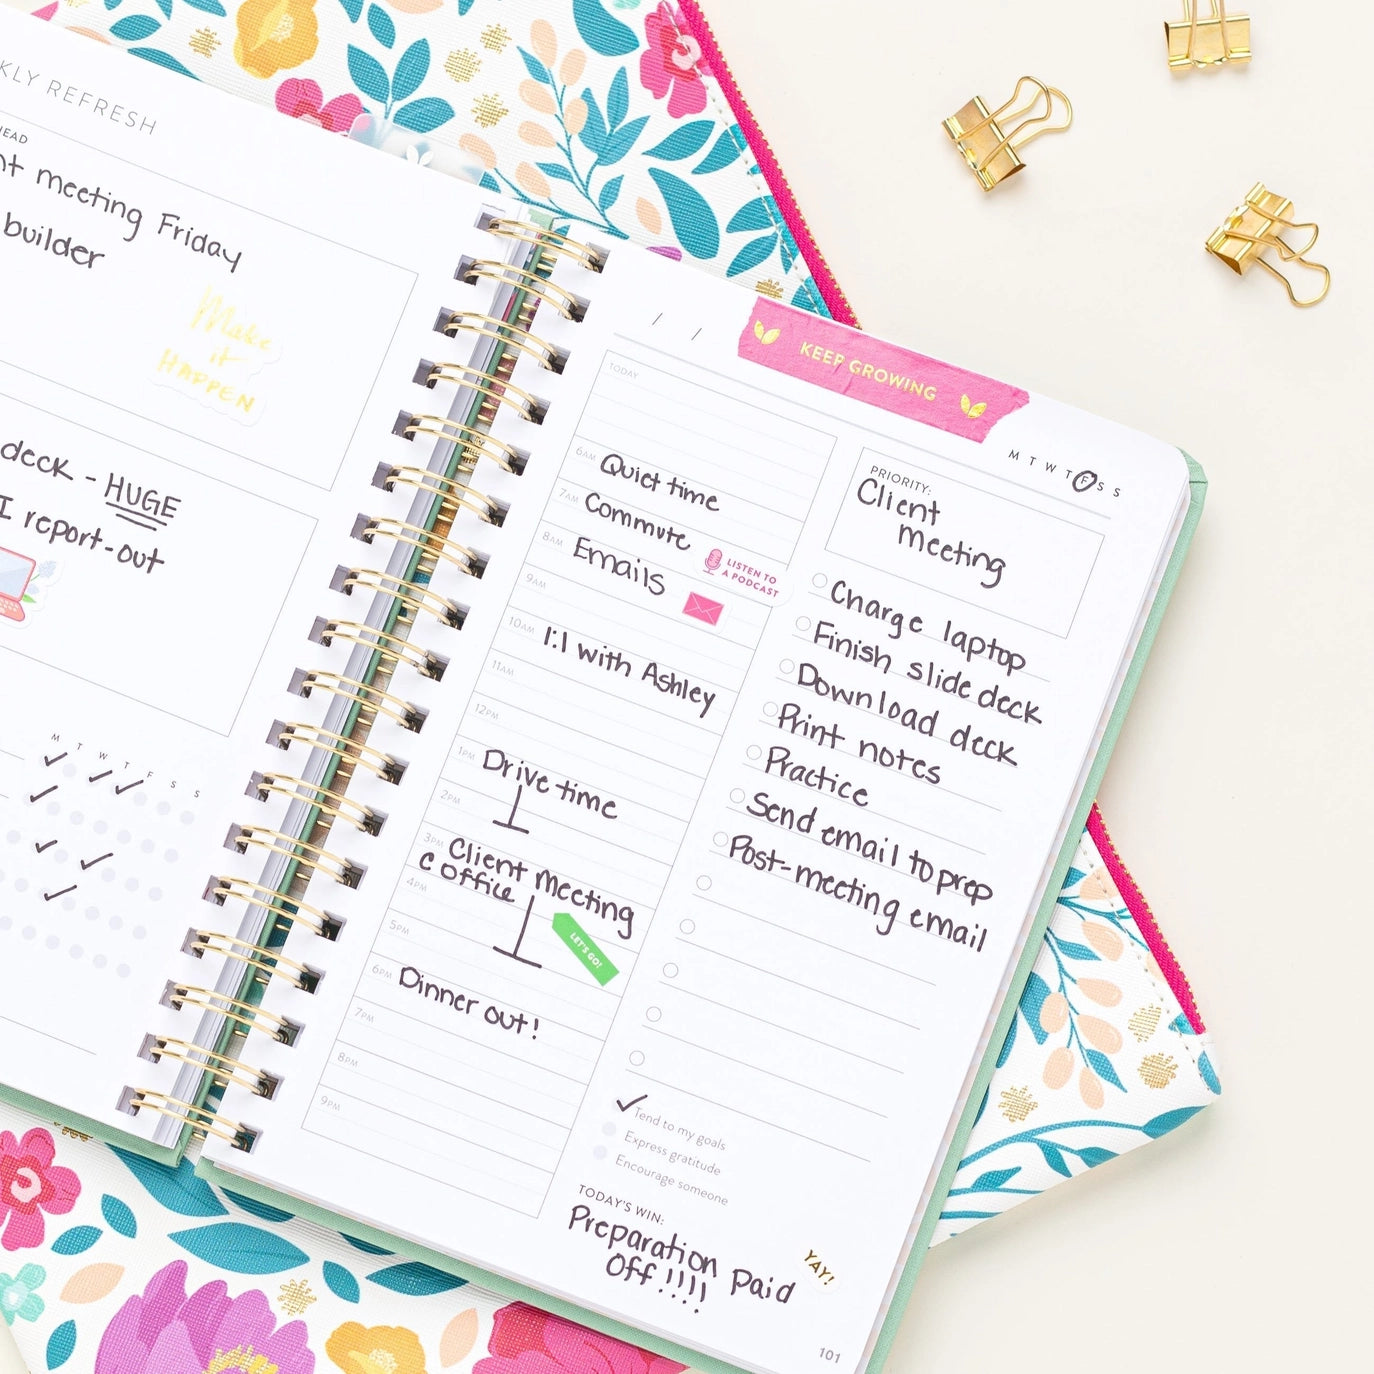 KLY REFRESH
HEAD
nt meeting Friday
builder
Make
it
HAPPEN
deck - HUGE
I report-out
M T W T F S S
/ /
KEEP GROWING
M T W T F S S
TODAY
6AM Quiet time
7AM Commute
LISTEN TO
A PODCAST
8AM Emails
9AM
10AM 1:1 with Ashley
11AM
12PM
1PM Drive time
2PM
3PM Client Meeting
c Office
4PM
LET'S GO!
5PM
6PM Dinner out!
7PM
8PM
9PM
PRIORITY:
Client
Meeting
Charge laptop
Finish slide deck
Download deck
Print notes
Practice
Send email to prep
Post-meeting email
Tend to my goals
Express gratitude
Encourage someone
TODAY'S WIN:
Preparation Paid
Off!!!!
YAY!
101